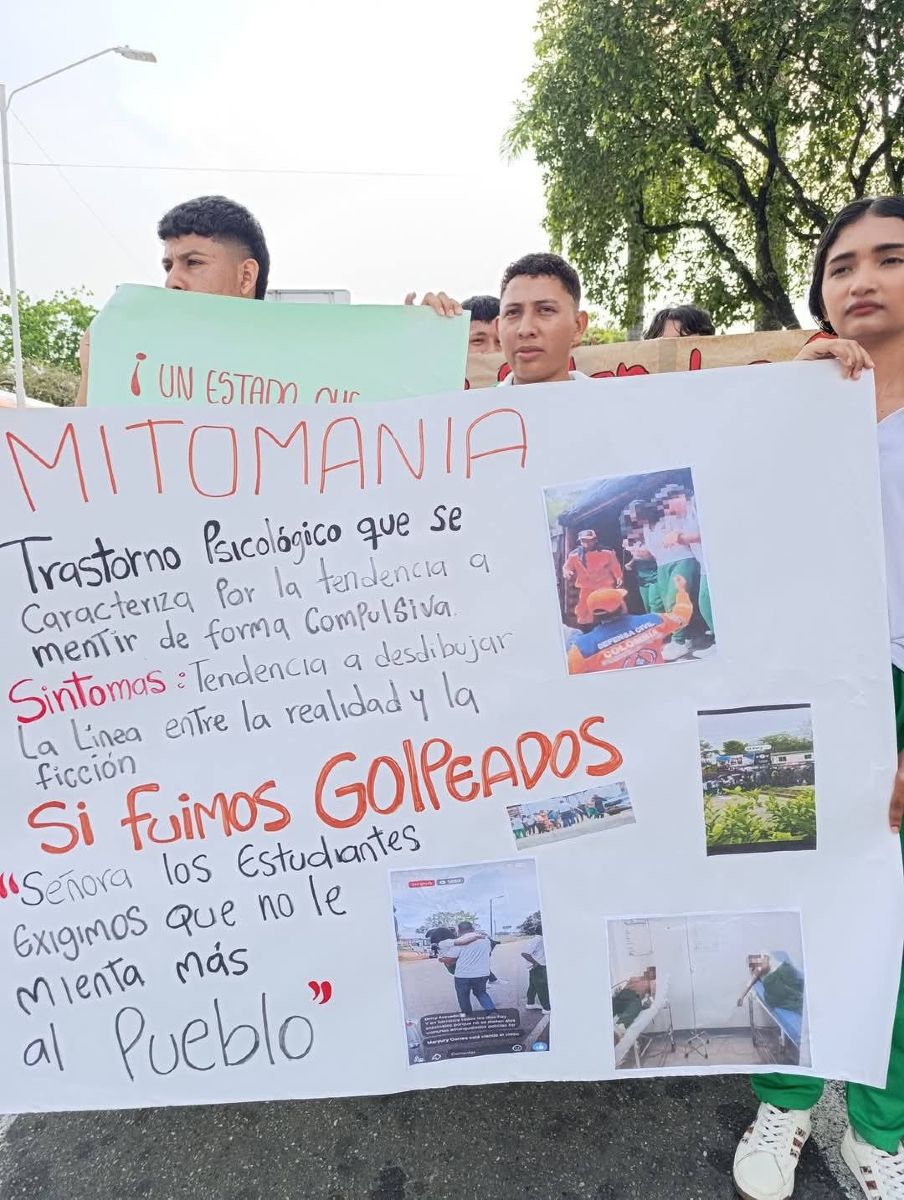 ¡ UN ESTADO QUE
MITOMANIA
Trastorno Psicológico que se
Caracteriza Por la tendencia a
mentir de forma Compulsiva.
Sintomas: Tendencia a desdibujar
La Línea entre la realidad y la
ficción
Si fuimos GOLPEADOS
"Señora los Estudiantes
Exigimos que no le
mienta más
al Pueblo"
DEFENSA CIVIL
COLOMBIA